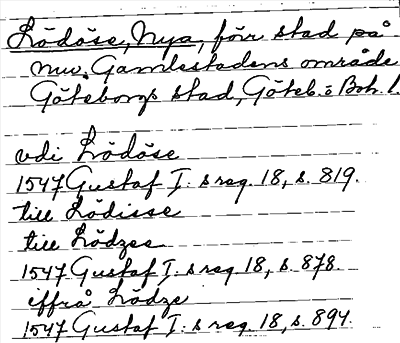 Lödöse, Nya, förr stad på
nuv. Gamlestadens område
Göteborgs stad, Göteb. o Boh. l.
vdi Lödöse
1547 Gustaf I: s reg. 18, s. 819.
till Lödisse
till Lödzee
1547 Gustaf I: s reg. 18, s. 878.
iffrå Lödze
1547 Gustaf I: s reg. 18, s. 894.